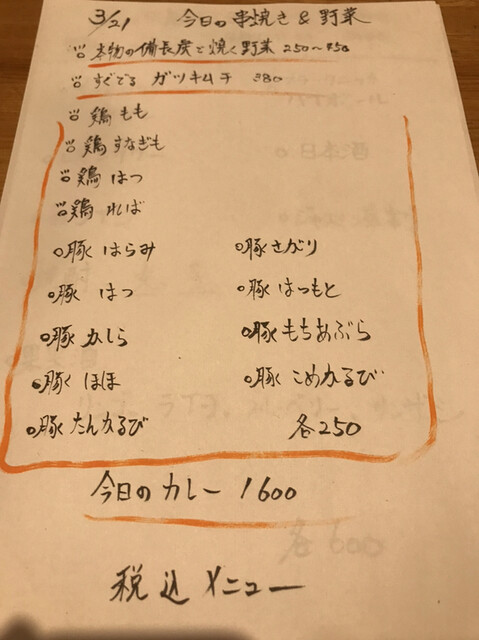 3/21 今日の串焼き & 野菜
本物の備長炭で焼く野菜 250〜450
すぐでる ガツキムチ 380
鶏 もも
鶏 すなぎも
鶏 はつ
鶏 ればー
豚 はらみ 豚 さがり
豚 はつ 豚 はつもと
豚 かしら 豚 もちあぶら
豚 ほほ 豚 こめかるび
豚 たんかるび 各250
今日のカレー 1600
税込メニュー